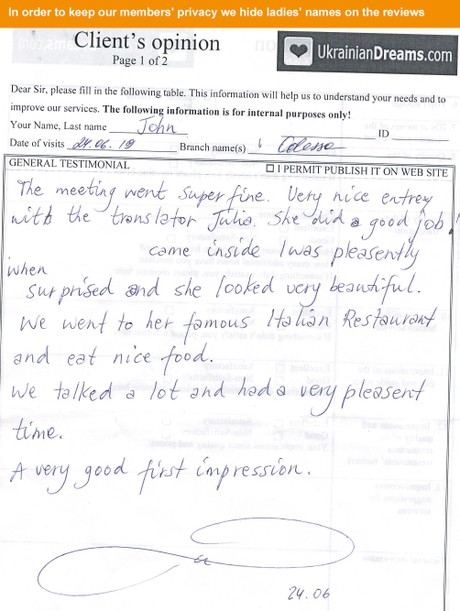 In order to keep our members' privacy we hide ladies' names on the reviews
Client's opinion
Page 1 of 2
UkrainianDreams.com
Dear Sir, please fill in the following table. This information will help us to understand your needs and to
improve our services. The following information is for internal purposes only!
Your Name, Last name John ID
Date of visits 24.06.19 Branch name(s) Odessa
GENERAL TESTIMONIAL ☐ I PERMIT PUBLISH IT ON WEB SITE
The meeting went super fine. Very nice entrey
with the translator Julia. She did a good job!
when came inside I was pleasently
surprised and she looked very beautiful.
We went to her famous Italian Restaurant
and eat nice food.
We talked a lot and had a very pleasent
time.
A very good first impression.
24.06